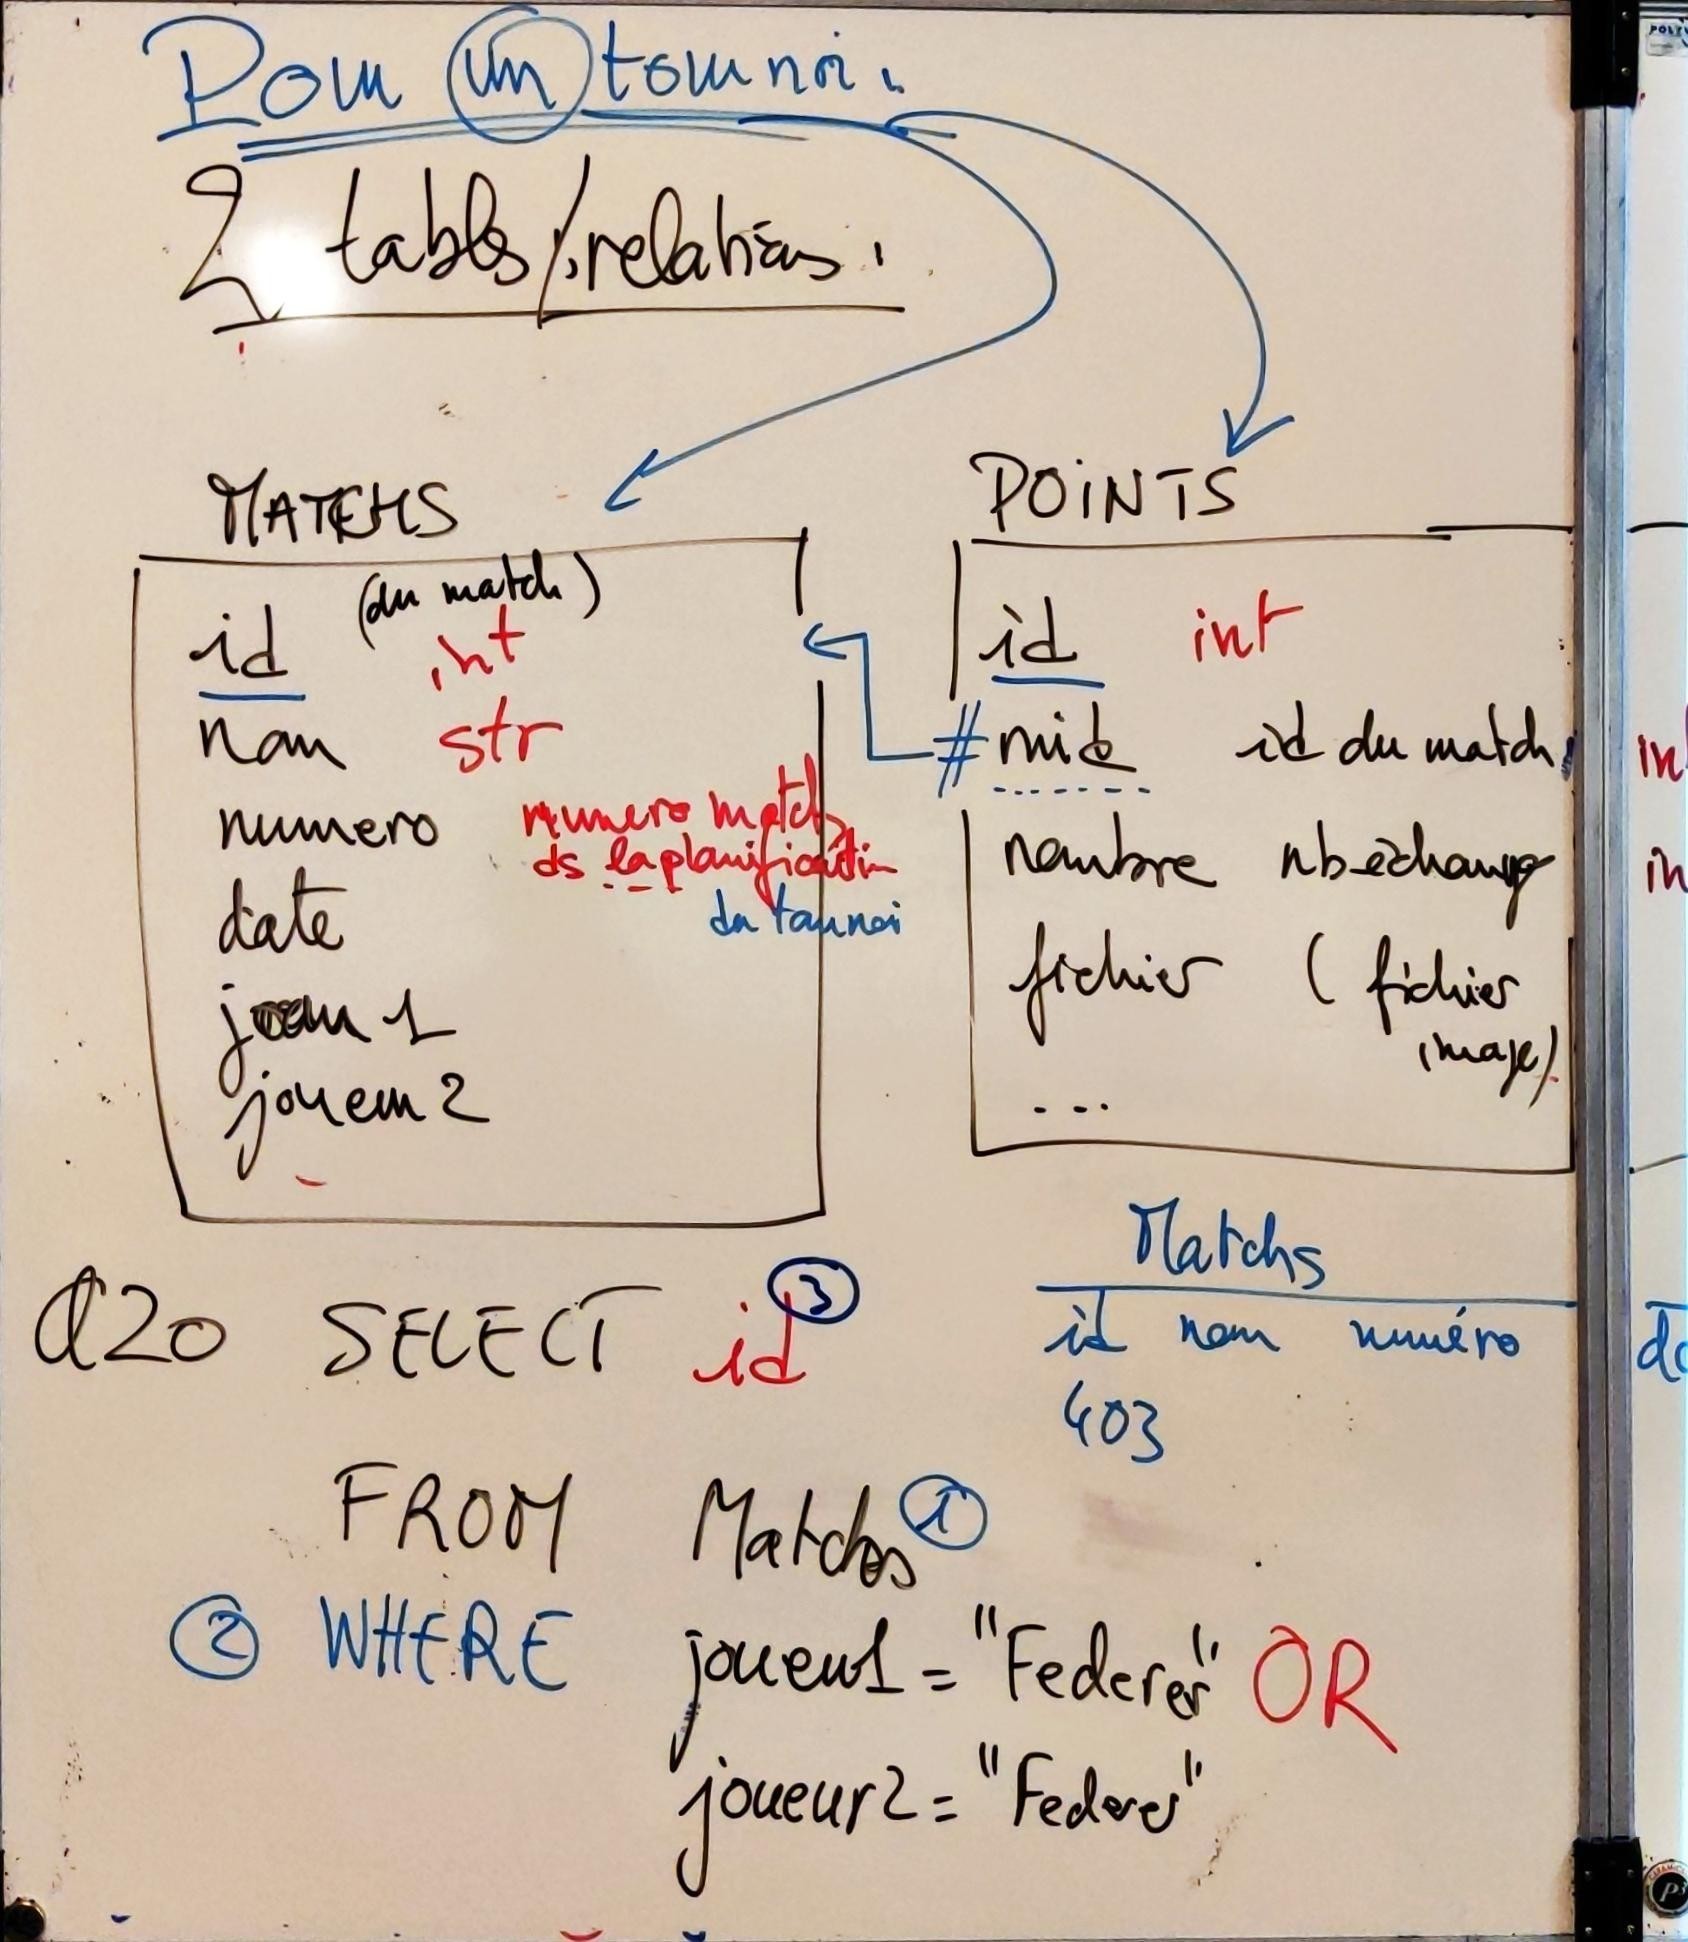 Pour un tournoi.
2 tables/relations.
MATCHS
id (du match) int
nom str
numero numero match
ds la planification
du tournoi
date
joueur 1
joueur 2
POINTS
id int
#mid id du match
nombre nb échange
fichier (fichier
image)
...
Matchs
id nom numéro
403
Q20 SELECT id ③
FROM Matchs ①
② WHERE joueur1 = "Federer" OR
joueur2 = "Federer"